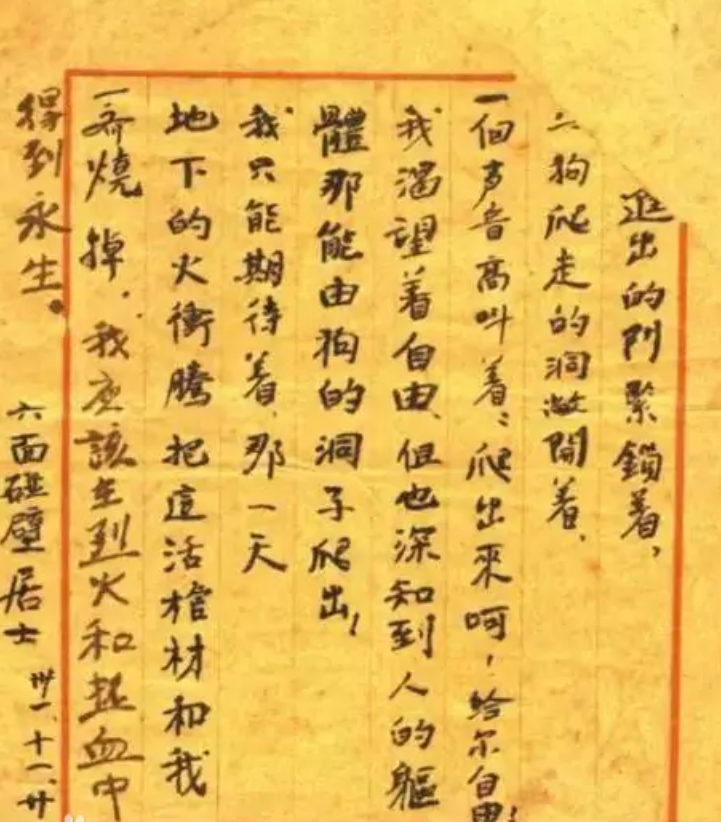 進出的門緊鎖着,
狗爬走的洞敞開着、
一個声音高叫着:爬出來呵!給尔自由!
我渴望着自由、但也深知到人的軀
體那能由狗的洞子爬出!
我只能期待着、那一天
地下的火衝騰把這活棺材和我
一齐燒掉,我应該在烈火和熱血中
得到永生。
六面碰壁居士 卅一、十一、廿